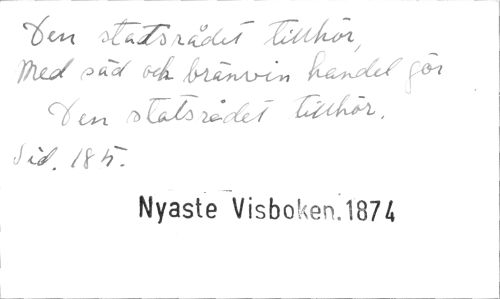 Den statsrådet tillhör,
Med säd och bränvin handel gör
Den statsrådet tillhör.
Sid. 185.
Nyaste Visboken. 1874